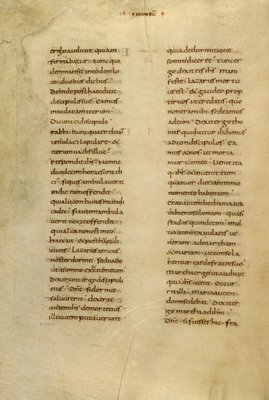 + SECUNDŪ +
ergo audiuit quia in
firmabatur tunc qui
dem mansit in eodem lo
co duobus diebus
deinde post haec dixit
discipulis suis eamus
in iudaeam iterum
Dicunt ei discipuli
rabbi nunc quaerebant
te iudaei lapidare et
iterum uadis illuc
respondit ihs nonne
duodecim horae sunt diei
si quis ambulauerit
in die non offendit
quia lucem huius mundi
uidet si autem ambula
uerit nocte offendit
quia lux non est in eo
haec ait et post haec di
cit eis lazarus amicus
noster dormit sed uado
ut a somno exsuscitem eum
dixerunt ergo discipuli
eius dne si dormit
saluus erit dixerat
autem ihs de morte eius
illi autem putauerunt
quia de dormitione
somni diceret tunc er
go dixit eis ihs mani
feste lazarus mortu
us est et gaudeo prop
ter uos ut credatis quo
niam non eram ibi sed eamus
ad eum dixit ergo tho
mas qui dicitur didimus
ad condiscipulos ea
mus et nos ut moria
mur cum eo uenit ita
que ihs et inuenit eum
quattuor dies iam in mo
numento habentem
erat autem bethania iux
ta hierosolyma quasi
stadiis quindecim mul
ti autem ex iudaeis ue
nerant ad martham
et mariam ut consola
rentur eas de fratre suo
martha ergo ut audiuit
quia ihs uenit occur
rit illi maria autem
domi sedebat dixit er
go martha ad ihm
dne si fuisses hic fra